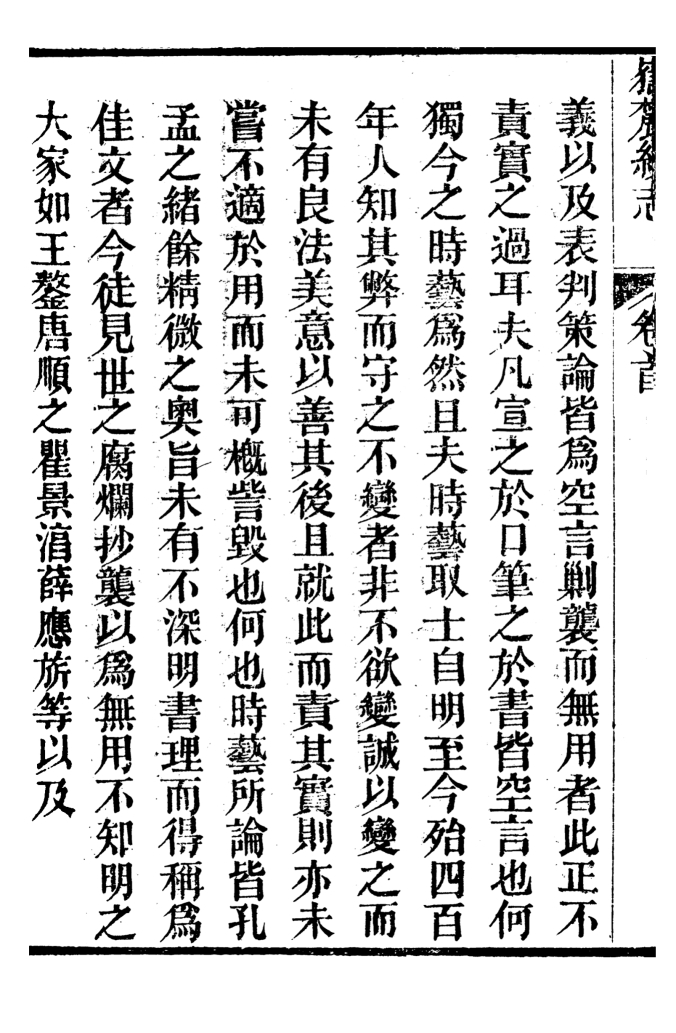 嶽麓續志
卷首
義以及表判策論皆爲空言剿襲而無用者此正不
責實之過耳夫凡宣之於口筆之於書皆空言也何
獨今之時藝爲然且夫時藝取士自明至今殆四百
年人知其弊而守之不變者非不欲變誠以變之而
未有良法美意以善其後且就此而責其實則亦未
嘗不適於用而未可槪訾毀也何也時藝所論皆孔
孟之緒餘精微之奧旨未有不深明書理而得稱爲
佳文者今徒見世之腐爛抄襲以爲無用不知明之
大家如王鏊唐順之瞿景淳薛應旂等以及